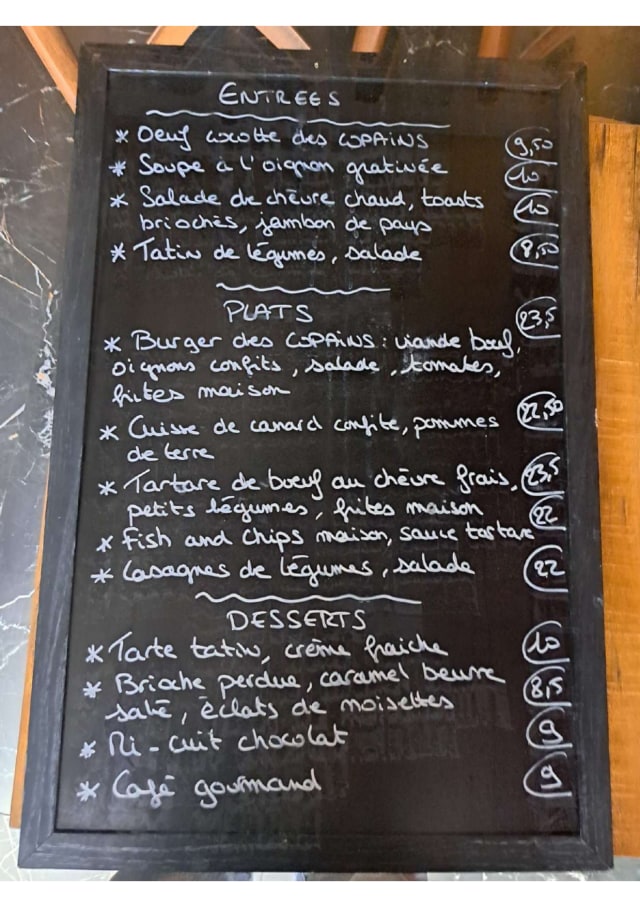 ENTREES
* Oeuf cocotte des COPAINS 9,50
* Soupe à l'oignon gratinée 10
* Salade de chèvre chaud, toasts 10
briochés, jambon de pays
* Tatin de légumes, salade 8,50
PLATS
* Burger des COPAINS : viande bœuf, 23,5
oignons confits, salade, tomates,
frites maison
* Cuisse de canard confite, pommes 22,50
de terre
* Tartare de boeuf au chèvre frais, 23,5
petits légumes, frites maison
* Fish and Chips maison, sauce tartare 22
* Lasagnes de légumes, salade 22
DESSERTS
* Tarte tatin, crème fraiche 10
* Brioche perdue, caramel beurre 8,5
salé, éclats de noisettes
* Mi-cuit chocolat 9
* Café gourmand 9